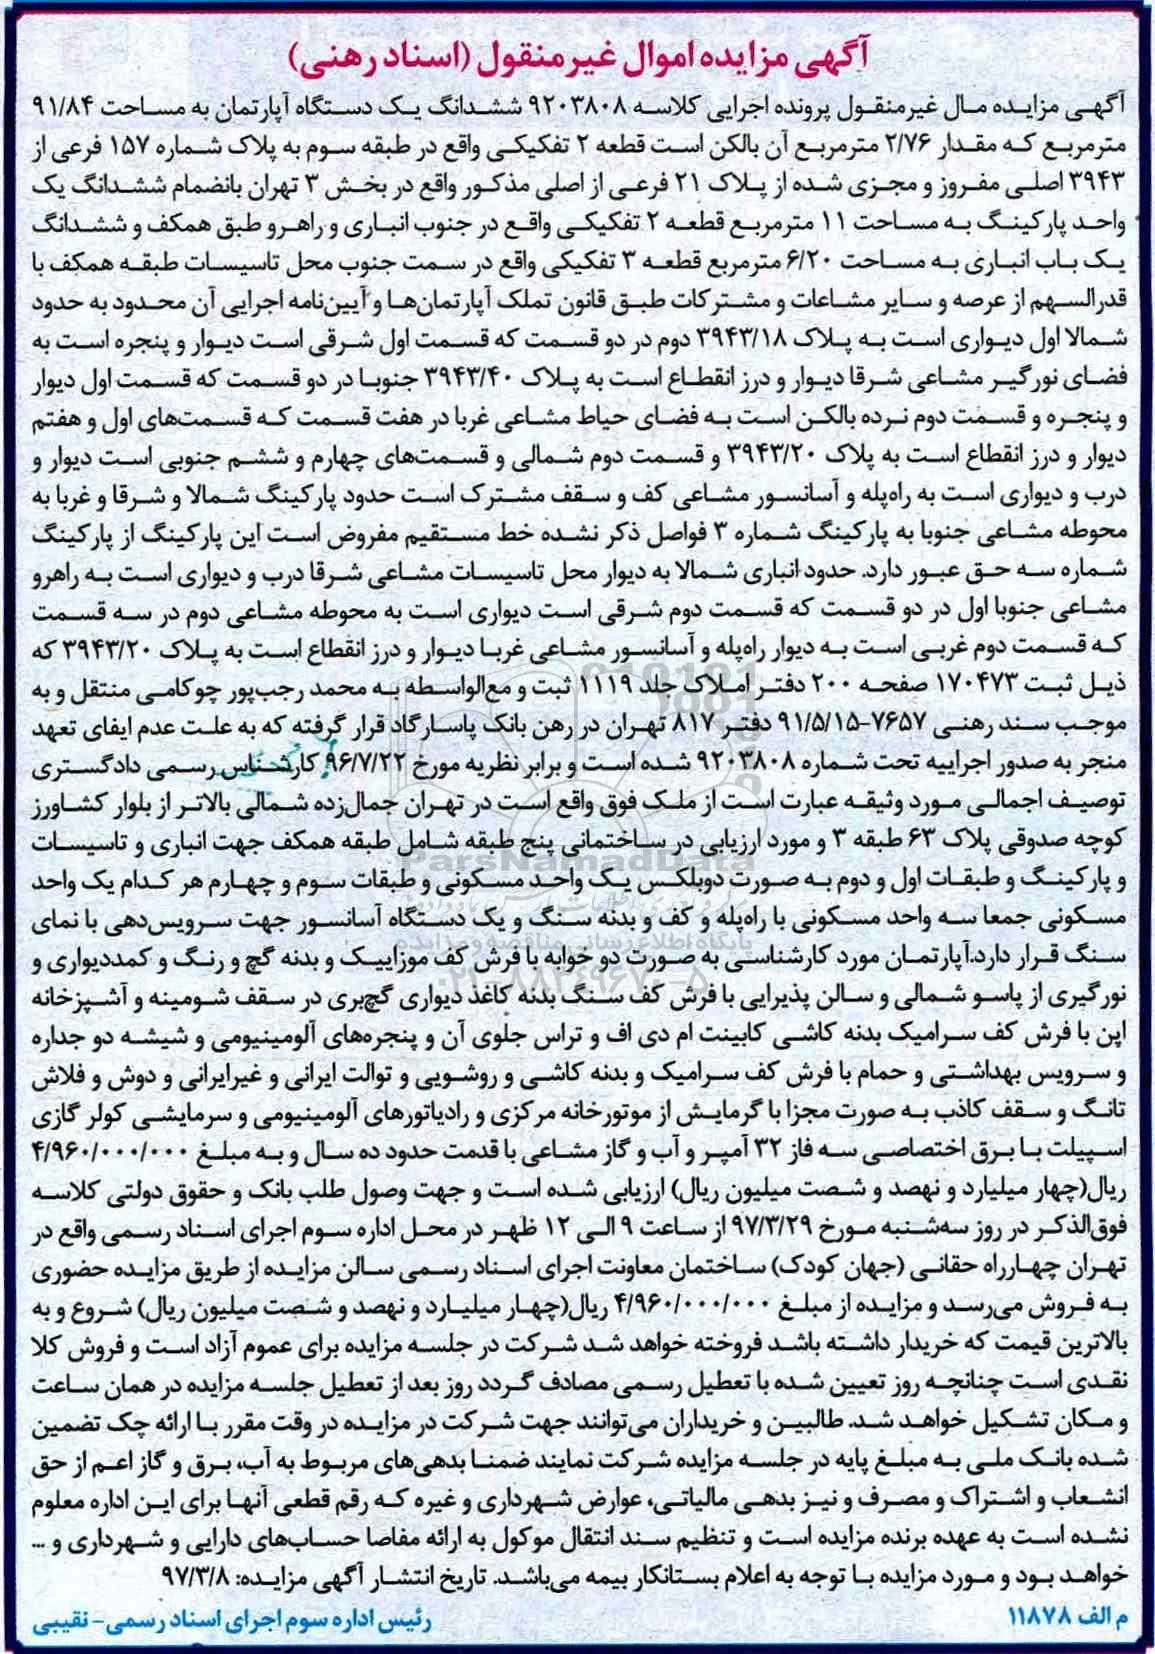 آگهی مزایده اموال غیرمنقول (اسناد رهنی)
آگهی مزایده مال غیرمنقول پرونده اجرایی کلاسه ۹۲۰۳۸۰۸ ششدانگ یک دستگاه آپارتمان به مساحت ۹۱/۸۴
مترمربع که مقدار ۲/۷۶ مترمربع آن بالکن است قطعه ۲ تفکیکی واقع در طبقه سوم به پلاک شماره ۱۵۷ فرعی از
۳۹۴۳ اصلی مفروز و مجزی شده از پلاک ۲۱ فرعی از اصلی مذکور واقع در بخش ۳ تهران بانضمام ششدانگ یک
واحد پارکینگ به مساحت ۱۱ مترمربع قطعه ۲ تفکیکی واقع در جنوب انباری و راهرو طبق همکف و ششدانگ
یک باب انباری به مساحت ۶/۲۰ مترمربع قطعه ۳ تفکیکی واقع در سمت جنوب محل تاسیسات طبقه همکف با
قدرالسهم از عرصه و سایر مشاعات و مشترکات طبق قانون تملک آپارتمان‌ها و آیین‌نامه اجرایی آن محدود به حدود
شمالا اول دیواری است به پلاک ۳۹۴۳/۱۸ دوم در دو قسمت که قسمت اول شرقی است دیوار و پنجره است به
فضای نورگیر مشاعی شرقا دیوار و درز انقطاع است به پلاک ۳۹۴۳/۴۰ جنوبا در دو قسمت که قسمت اول دیوار
و پنجره و قسمت دوم نرده بالکن است به فضای حیاط مشاعی غربا در هفت قسمت که قسمت‌های اول و هفتم
دیوار و درز انقطاع است به پلاک ۳۹۴۳/۲۰ و قسمت دوم شمالی و قسمت‌های چهارم و ششم جنوبی است دیوار و
درب و دیواری است به راه‌پله و آسانسور مشاعی کف و سقف مشترک است حدود پارکینگ شمالا و شرقا و غربا به
محوطه مشاعی جنوبا به پارکینگ شماره ۳ فواصل ذکر نشده خط مستقیم مفروض است این پارکینگ از پارکینگ
شماره سه حق عبور دارد. حدود انباری شمالا به دیوار محل تاسیسات مشاعی شرقا درب و دیواری است به راهرو
مشاعی جنوبا اول در دو قسمت که قسمت دوم شرقی است دیواری است به محوطه مشاعی دوم در سه قسمت
که قسمت دوم غربی است به دیوار راه‌پله و آسانسور مشاعی غربا دیوار و درز انقطاع است به پلاک ۳۹۴۳/۲۰ که
ذیل ثبت ۱۷۰۴۷۳ صفحه ۲۰۰ دفتر املاک جلد ۱۱۱۹ ثبت و مع‌الواسطه به محمد رجب‌پور چوکامی منتقل و به
موجب سند رهنی ۷۶۵۷-۹۱/۵/۱۵ دفتر ۸۱۷ تهران در رهن بانک پاسارگاد قرار گرفته که به علت عدم ایفای تعهد
منجر به صدور اجراییه تحت شماره ۹۲۰۳۸۰۸ شده است و برابر نظریه مورخ ۹۶/۷/۲۲ کارشناس رسمی دادگستری
توصیف اجمالی مورد وثیقه عبارت است از ملک فوق واقع است در تهران جمال‌زده شمالی بالاتر از بلوار کشاورز
کوچه صدوقی پلاک ۶۳ طبقه ۳ و مورد ارزیابی در ساختمانی پنج طبقه شامل طبقه همکف جهت انباری و تاسیسات
و پارکینگ و طبقات اول و دوم به صورت دوبلکس یک واحد مسکونی و طبقات سوم و چهارم هر کدام یک واحد
مسکونی جمعا سه واحد مسکونی با راه‌پله و کف و بدنه سنگ و یک دستگاه آسانسور جهت سرویس‌دهی با نمای
سنگ قرار دارد.آپارتمان مورد کارشناسی به صورت دو خوابه با فرش کف موزاییک و بدنه گچ و رنگ و کمددیواری و
نورگیری از پاسو شمالی و سالن پذیرایی با فرش کف سنگ بدنه کاغذ دیواری گچ‌بری در سقف شومینه و آشپزخانه
اپن با فرش کف سرامیک بدنه کاشی کابینت ام دی اف و تراس جلوی آن و پنجره‌های آلومینیومی و شیشه دو جداره
و سرویس بهداشتی و حمام با فرش کف سرامیک و بدنه کاشی و روشویی و توالت ایرانی و غیرایرانی و دوش و فلاش
تانگ و سقف کاذب به صورت مجزا با گرمایش از موتورخانه مرکزی و رادیاتورهای آلومینیومی و سرمایشی کولر گازی
اسپیلت با برق اختصاصی سه فاز ۳۲ آمپر و آب و گاز مشاعی با قدمت حدود ده سال و به مبلغ ۴/۹۶۰/۰۰۰/۰۰۰
ریال(چهار میلیارد و نهصد و شصت میلیون ریال) ارزیابی شده است و جهت وصول طلب بانک و حقوق دولتی کلاسه
فوق‌الذکر در روز سه‌شنبه مورخ ۹۷/۳/۲۹ از ساعت ۹ الی ۱۲ ظهر در محل اداره سوم اجرای اسناد رسمی واقع در
تهران چهارراه حقانی (جهان کودک) ساختمان معاونت اجرای اسناد رسمی سالن مزایده از طریق مزایده حضوری
به فروش می‌رسد و مزایده از مبلغ ۴/۹۶۰/۰۰۰/۰۰۰ ریال(چهار میلیارد و نهصد و شصت میلیون ریال) شروع و به
بالاترین قیمت که خریدار داشته باشد فروخته خواهد شد شرکت در جلسه مزایده برای عموم آزاد است و فروش کلا
نقدی است چنانچه روز تعیین شده با تعطیل رسمی مصادف گردد روز بعد از تعطیل جلسه مزایده در همان ساعت
و مکان تشکیل خواهد شد. طالبین و خریداران می‌توانند جهت شرکت در مزایده در وقت مقرر با ارائه چک تضمین
شده بانک ملی به مبلغ پایه در جلسه مزایده شرکت نمایند ضمنا بدهی‌های مربوط به آب، برق و گاز اعم از حق
انشعاب و اشتراک و مصرف و نیز بدهی مالیاتی، عوارض شهرداری و غیره که رقم قطعی آنها برای این اداره معلوم
نشده است به عهده برنده مزایده است و تنظیم سند انتقال موکول به ارائه مفاصا حساب‌های دارایی و شهرداری و ...
خواهد بود و مورد مزایده با توجه به اعلام بستانکار بیمه می‌باشد. تاریخ انتشار آگهی مزایده: ۹۷/۳/۸
م الف ۱۱۸۷۸ رئیس اداره سوم اجرای اسناد رسمی- نقیبی
ParsNamadData
پایگاه اطلاع رسانی مناقصه و مزایده